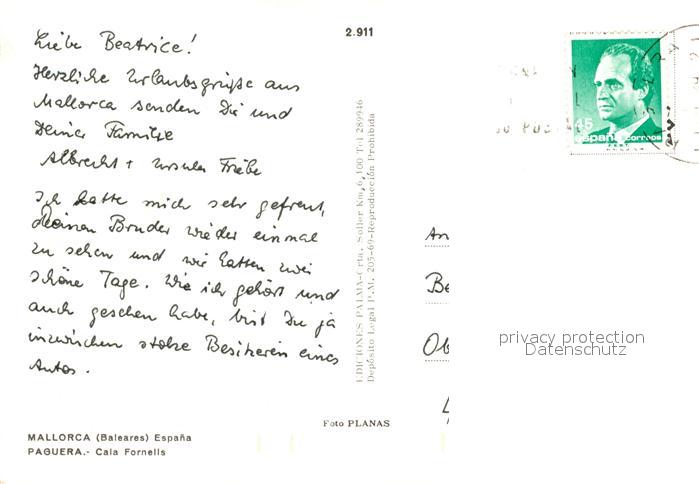 Liebe Beatrice!
Herzliche Urlaubsgrüße aus
Mallorca senden Dir und
Deiner Familie
Albrecht + Ursula
Ich hatte mich sehr gefreut,
Deinen Bruder wieder einmal
zu sehen und wir hatten zwei
schöne Tage. Wie ich gehört und
auch gesehen habe, bist Du ja
inzwischen stolze Besitzerin eines
Autos.
2.911
EDICIONES PALMA-Crta. Soller Km. 6,100 Tel 289946
Depósito Legal P.M. 205-69-Reproducción Prohibida
Foto PLANAS
MALLORCA (Baleares) España
PAGUERA.- Cala Fornells
45
España correos
An
Be
Ob
privacy protection
Datenschutz